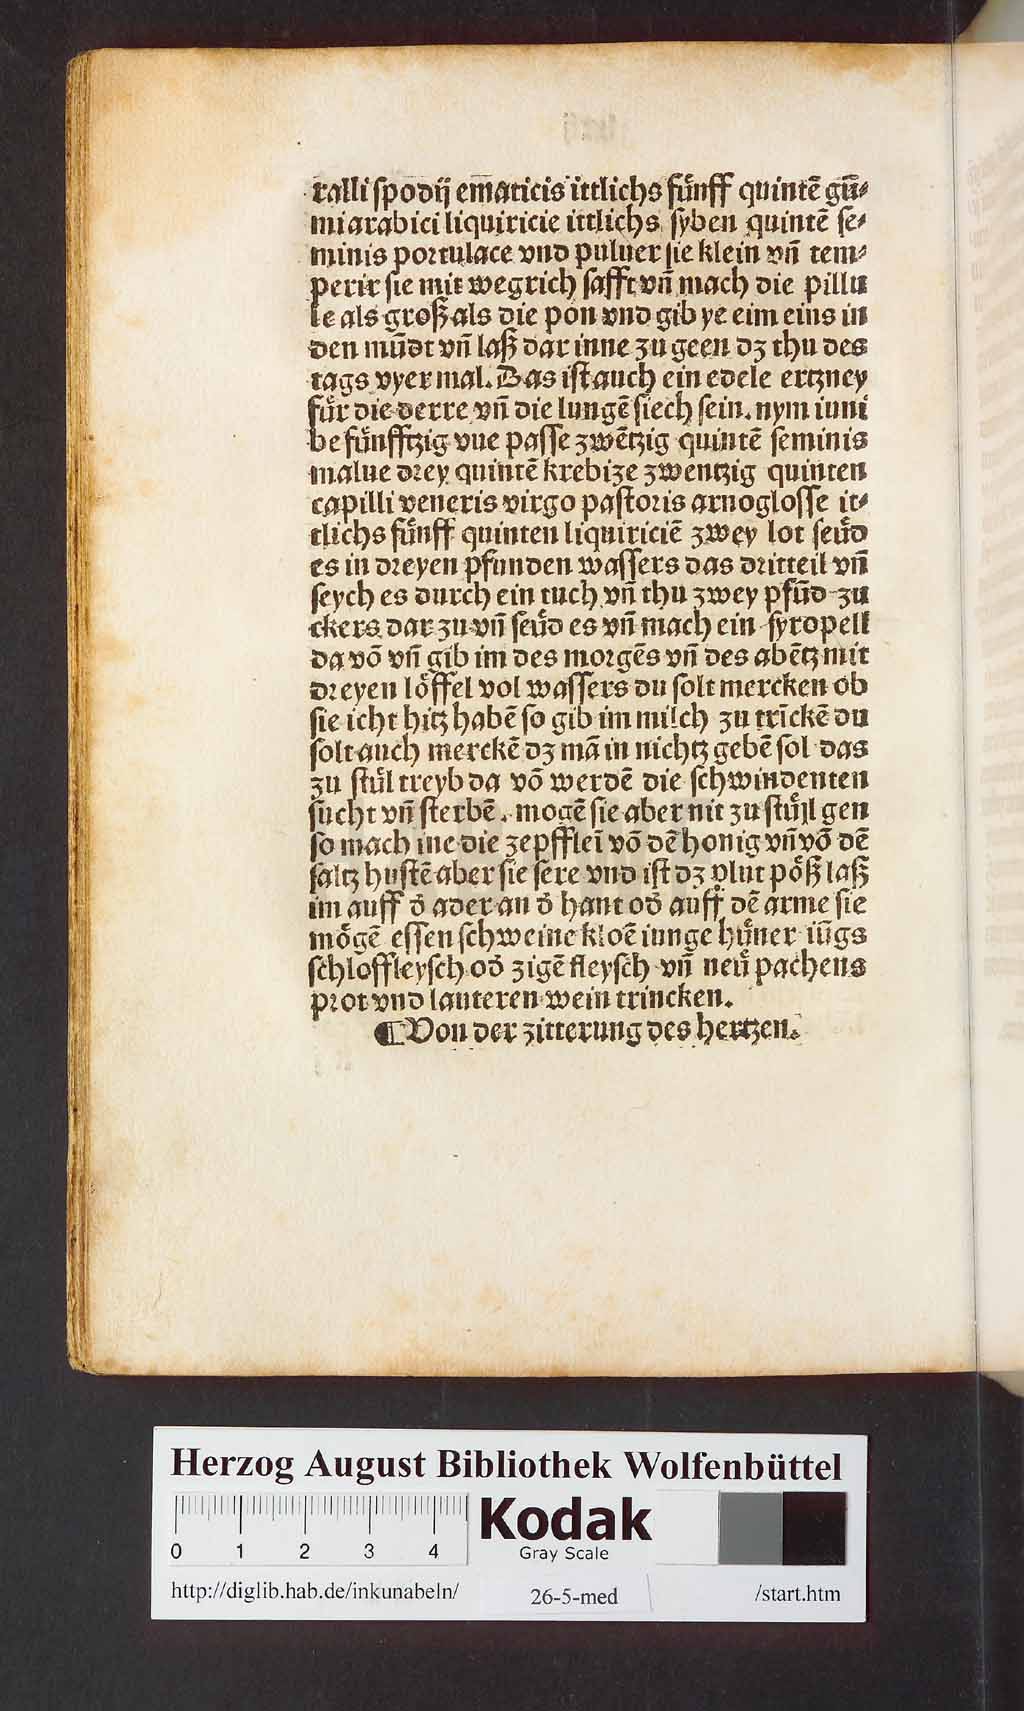 ralli ſpodij em̄aticis ittlichs fu̎nff quintē gū⸗
mi arabici liquiricie ittlichs ſyben quintē ſe⸗
minis portulace vnd puluer ſie klein vn̄ tem⸗
perir ſie mit wegrich ſafft vn̄ mach die pillu
le als groß als die pon vnd gib ye eim eins in
den mūdt vn̄ laß dar inne zu geen dz thu des
tags vyer mal. Das iſt auch ein edele ertzney
fu̎r die derre vn̄ die lungē ſiech ſein. nym iuni
be fu̎nfftzig vue paſſe zwētzig quintē ſeminis
malue drey quintē krebize zwentzig quinten
capilli veneris virgo paſtoris arnogloſſe it⸗
tlichs fu̎nff quinten liquiriciē zwey lot ſeu̎d
es in dreyen pfunden waſſers das dritteil vn̄
ſeych es durch ein tuch vn̄ thu zwey pfūd zu
ckers dar zu vn̄ ſeu̎d es vn̄ mach ein ſyropell
da vō vn̄ gib im des morgēs vn̄ des abētz mit
dreyen lo̎ffel vol waſſers du ſolt mercken ob
ſie icht hitz habē ſo gib im milch zu trīckē du
ſolt auch merckē dz mā in nichtz gebē ſol das
zu ſtu̎l treyb da vō werdē die ſchwindenten
ſucht vn̄ ſterbē. mogē ſie aber nit zu ſtu̎l gen
ſo mach ine die zepffleī vō dē honig vn̄ vō dē
ſaltz huſtē aber ſie ſere vnd iſt dz plut po̎ß laß
im auff d̓ ader an d̓ hant od̓ auff dē arme ſie
mo̎gē eſſen ſchweine kloē iunge hu̎ner iūgs
ſchloffleyſch od̓ zigē fleyſch vn̄ neu̎ pachens
prot vnd lauteren wein trincken.
¶ Von der zitterung des hertzen.
Herzog August Bibliothek Wolfenbüttel
0 1 2 3 4
Kodak
Gray Scale
http://diglib.hab.de/inkunabeln/ 26-5-med /start.htm